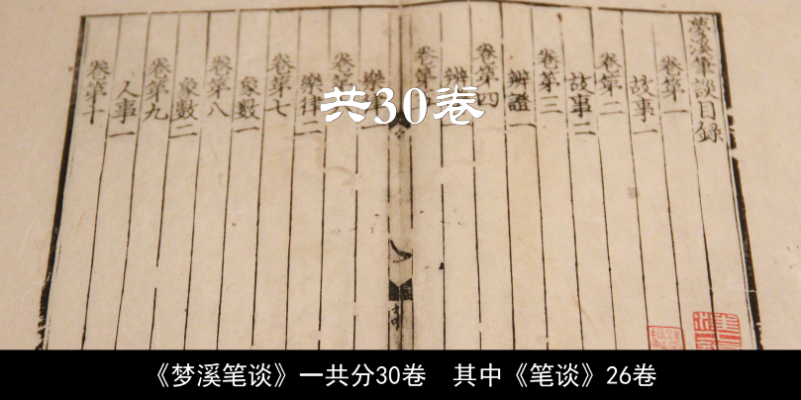 夢溪筆談目錄
卷第一
故事一
卷第二
故事二
卷第三
辨證一
卷第四
辨
卷第
樂
卷第
樂律二
卷第七
象數一
卷第八
象數二
卷第九
人事一
卷第十
共30卷
《梦溪笔谈》一共分30卷 其中《笔谈》26卷